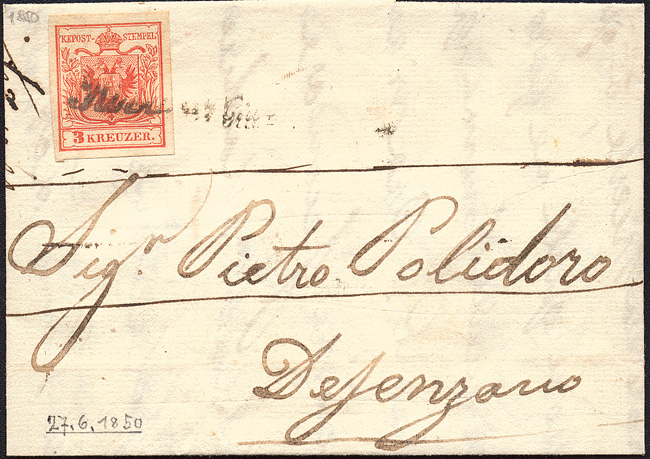 1850
KKPOST-STEMPEL
3 KREUZER.
Sig.r Pietro Polidoro
Desenzano
27.6.1850